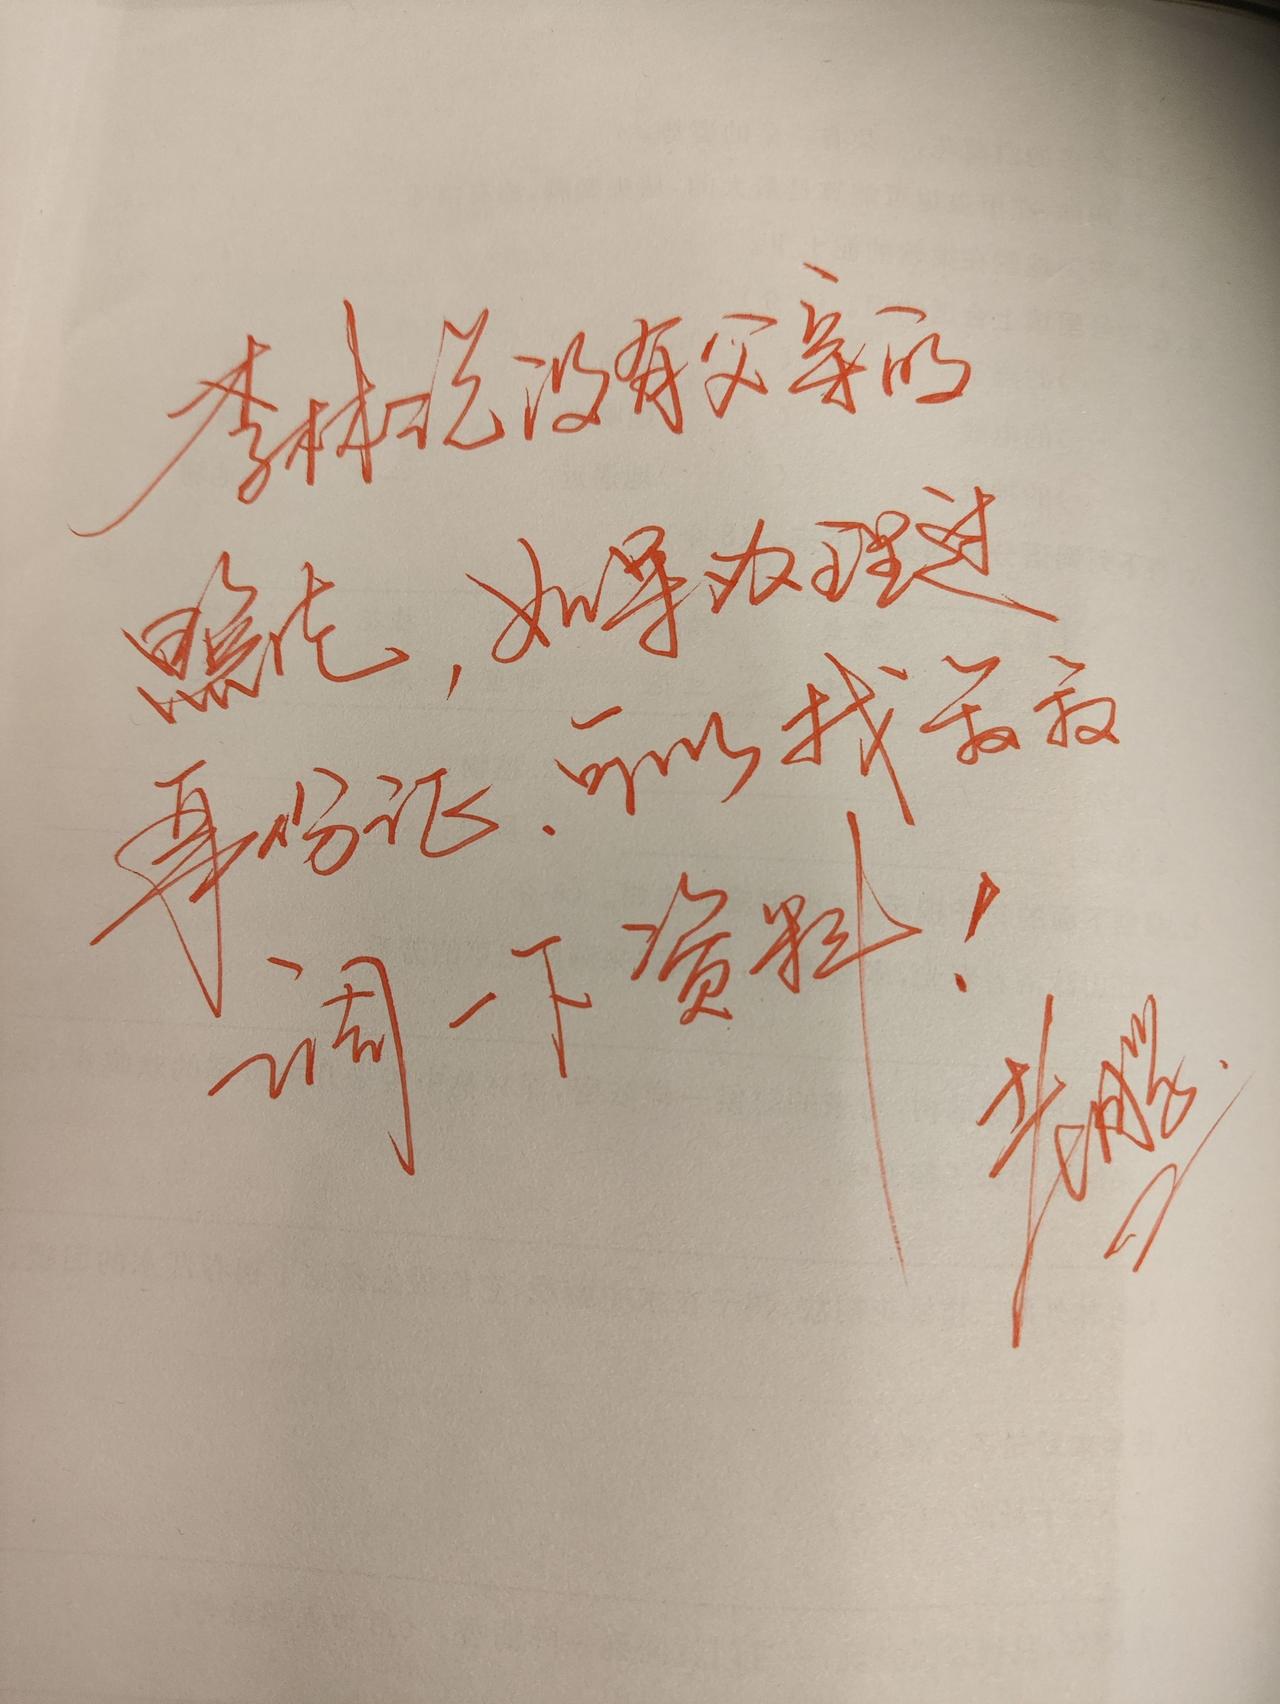 李林说没有父亲的
照片，如果办理过
身份证，可以找叔叔
调一下资料！